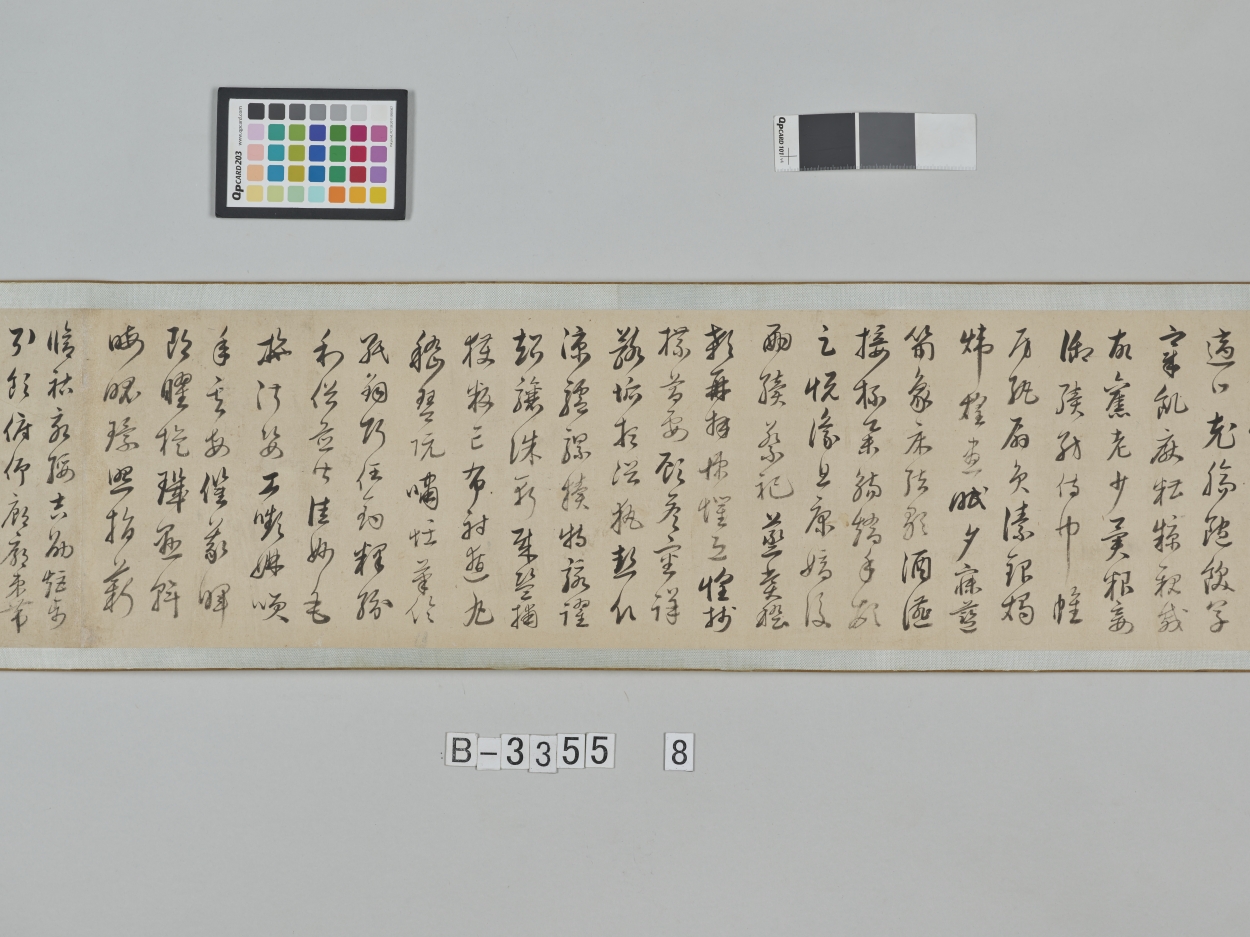 適口充腸飽飫烹
宰飢厭糟糠親戚
故舊老少異粮妾
御績紡侍巾帷
房紈扇員潔銀燭
煒煌晝眠夕寐藍
笋象床弦歌酒讌
接杯舉觴矯手頓
足悅豫且康嫡後
嗣續祭祀蒸嘗稽
顙再拜悚懼恐惶牋
牒簡要顧答審詳
骸垢想浴執熱願
涼驢騾犢特駭躍
超驤誅斬賊盜捕
獲叛亡布射遼丸
嵇琴阮嘯恬筆倫
紙鈞巧任釣釋紛
利俗並皆佳妙毛
施淑姿工顰妍笑
年矢每催羲暉
朗曜旋璣懸斡
晦魄環照指薪
脩祜永綏吉劭矩步
引領俯仰廊廟束帶
QPCARD 203
www.qpcard.com
QPCARD 101
B-3355 8